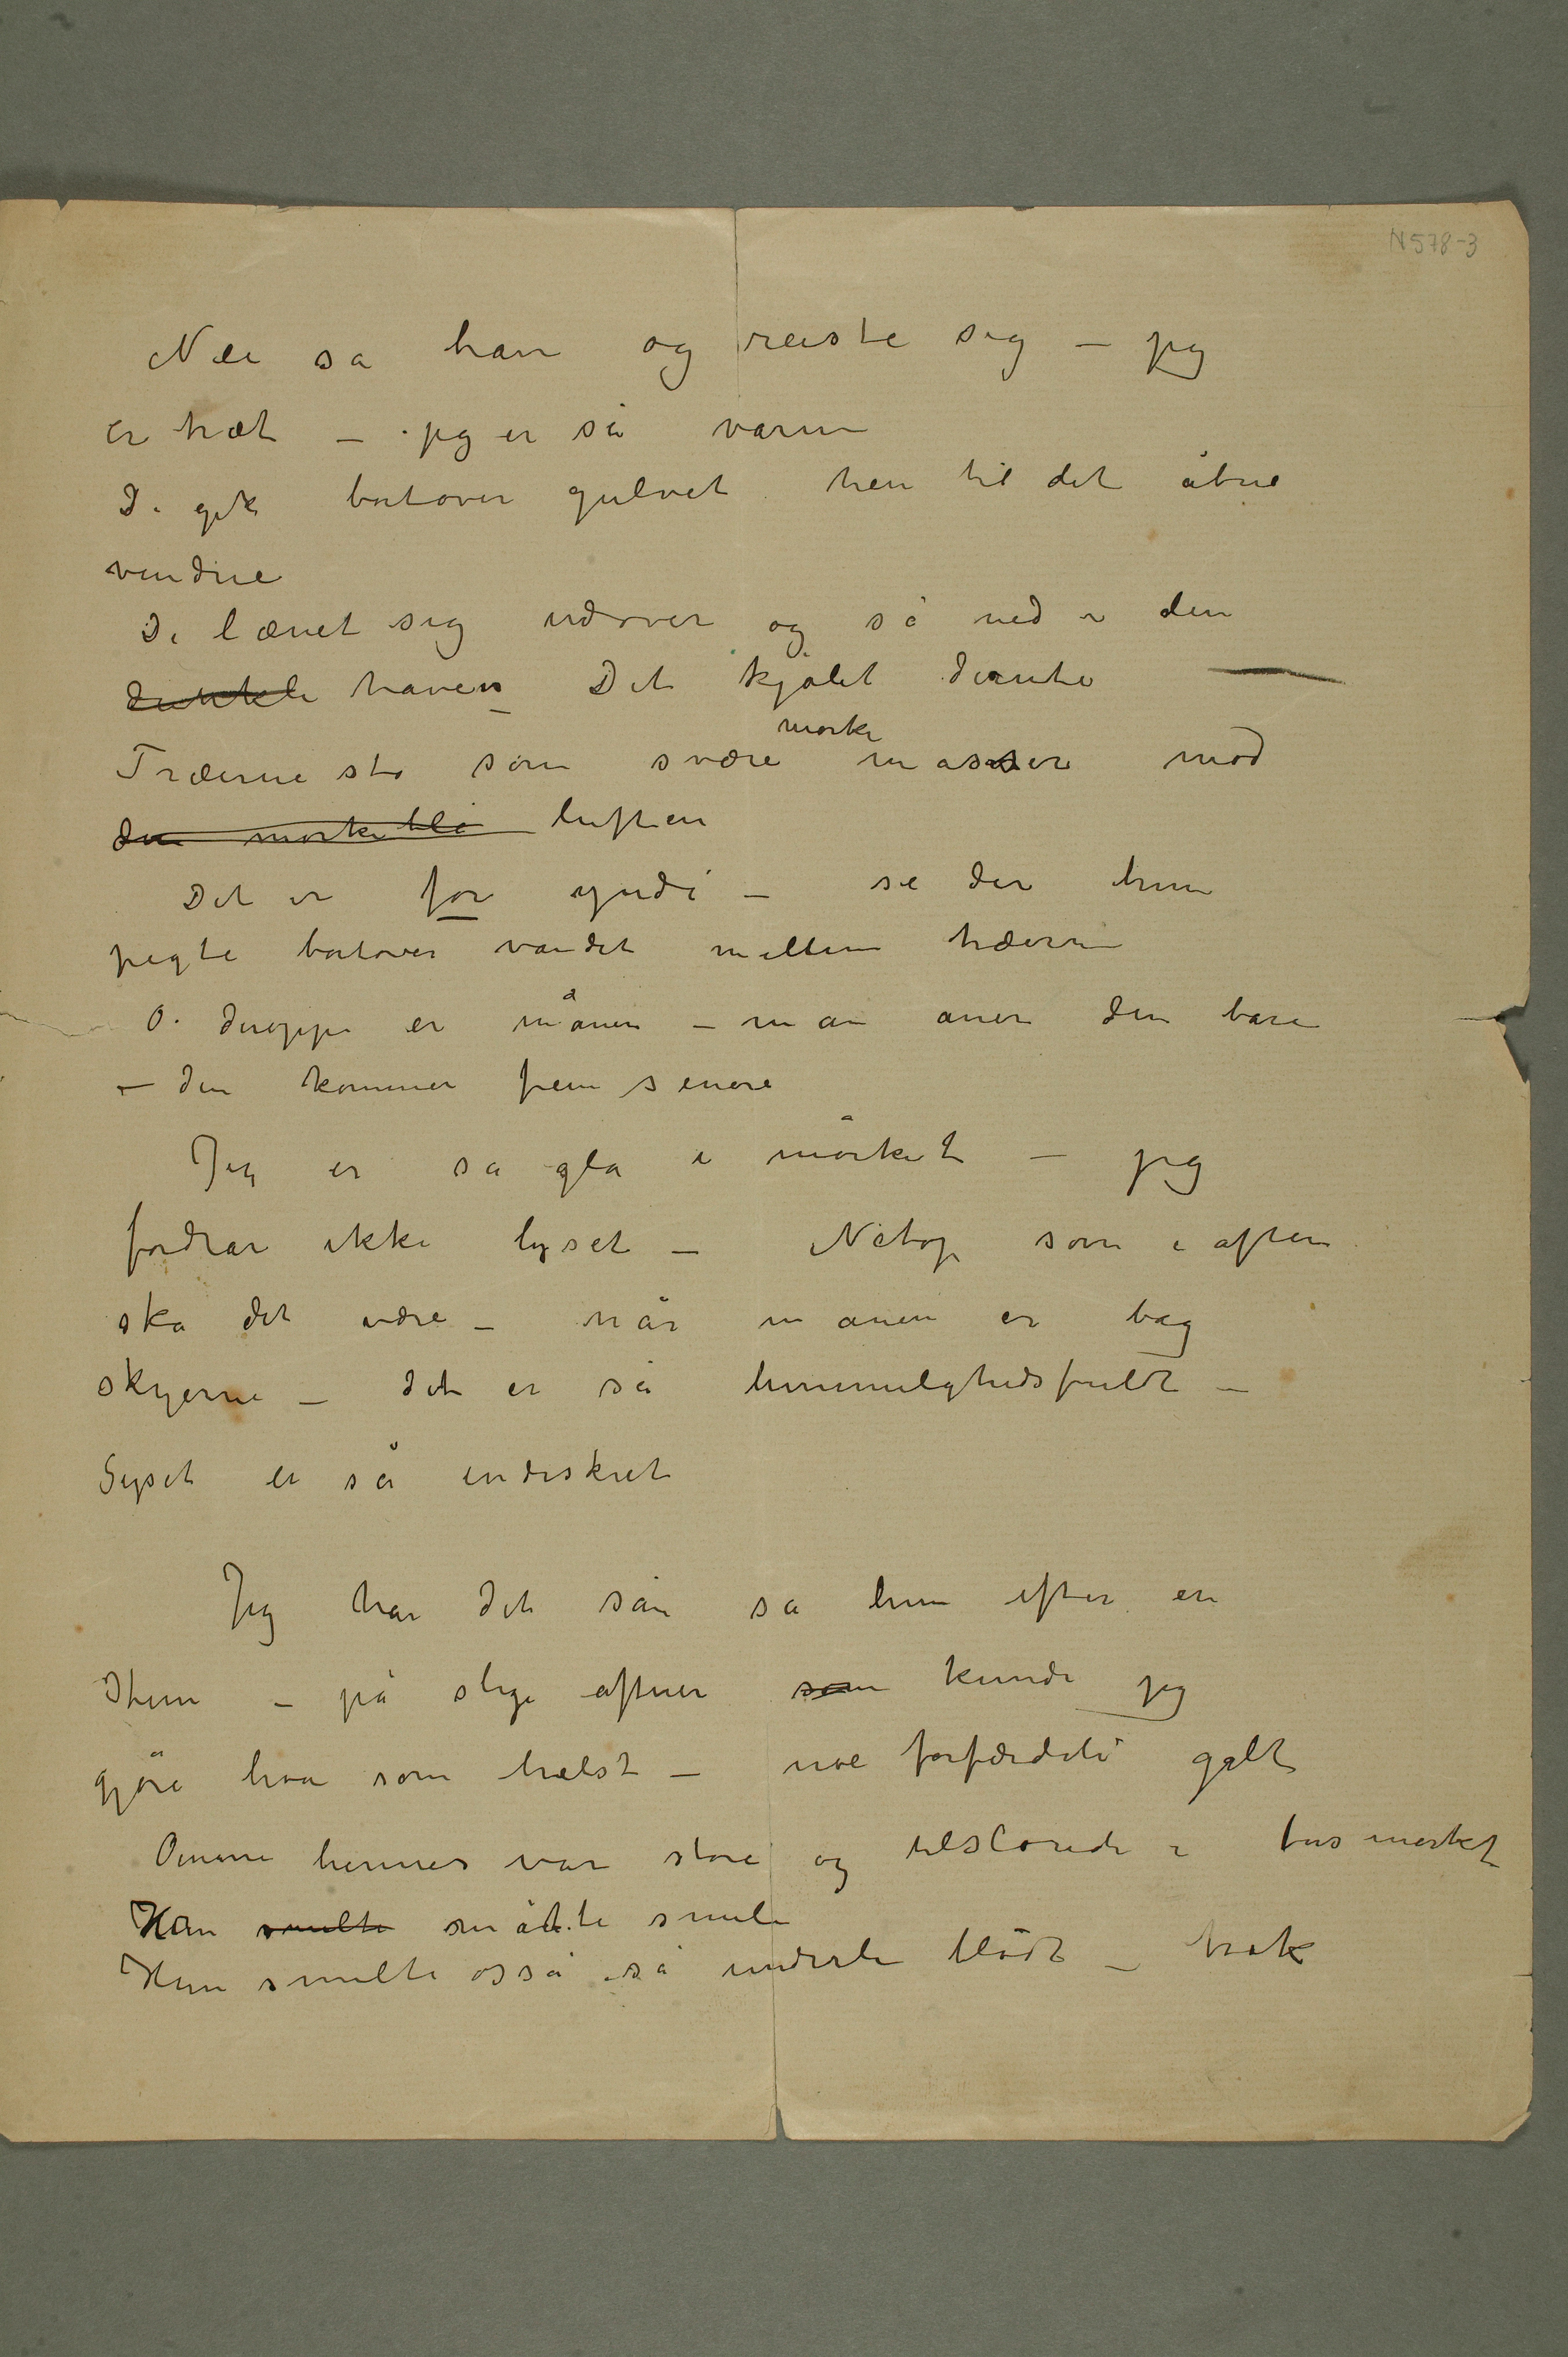 N578-3
Nei sa han og reiste sig – jeg
er træt – jeg er så varm
Di gik bortover gulvet hen til det åbne
vindue
Di lænet sig udover og så ned i den
dunkle haven Det kjølet derute —
mørke
Træerne sto som svære masser mod
den mørkeblå luften
Det er for yndi – se der hun
pegte bortover vandet mellem træerne
O. deroppe er månen – man aner den bare
– den kommer frem senere
Jeg er så gla i mørket – jeg
fordrar ikke lyset – Netop som i aften
ska det være – når månen er bag
skyerne – det er så hemmelighedsfuldt –
Lyset er så indiskret
Jeg har det sån sa hun efter en
stun – på slige aftner som kunde jeg
gjøre hva som helst – noe forfærdeli galt
Øinene hennes var store og tilslørede i tusmørket
Han smilte måtte smile
Hun smilte også så underli blødt – trak